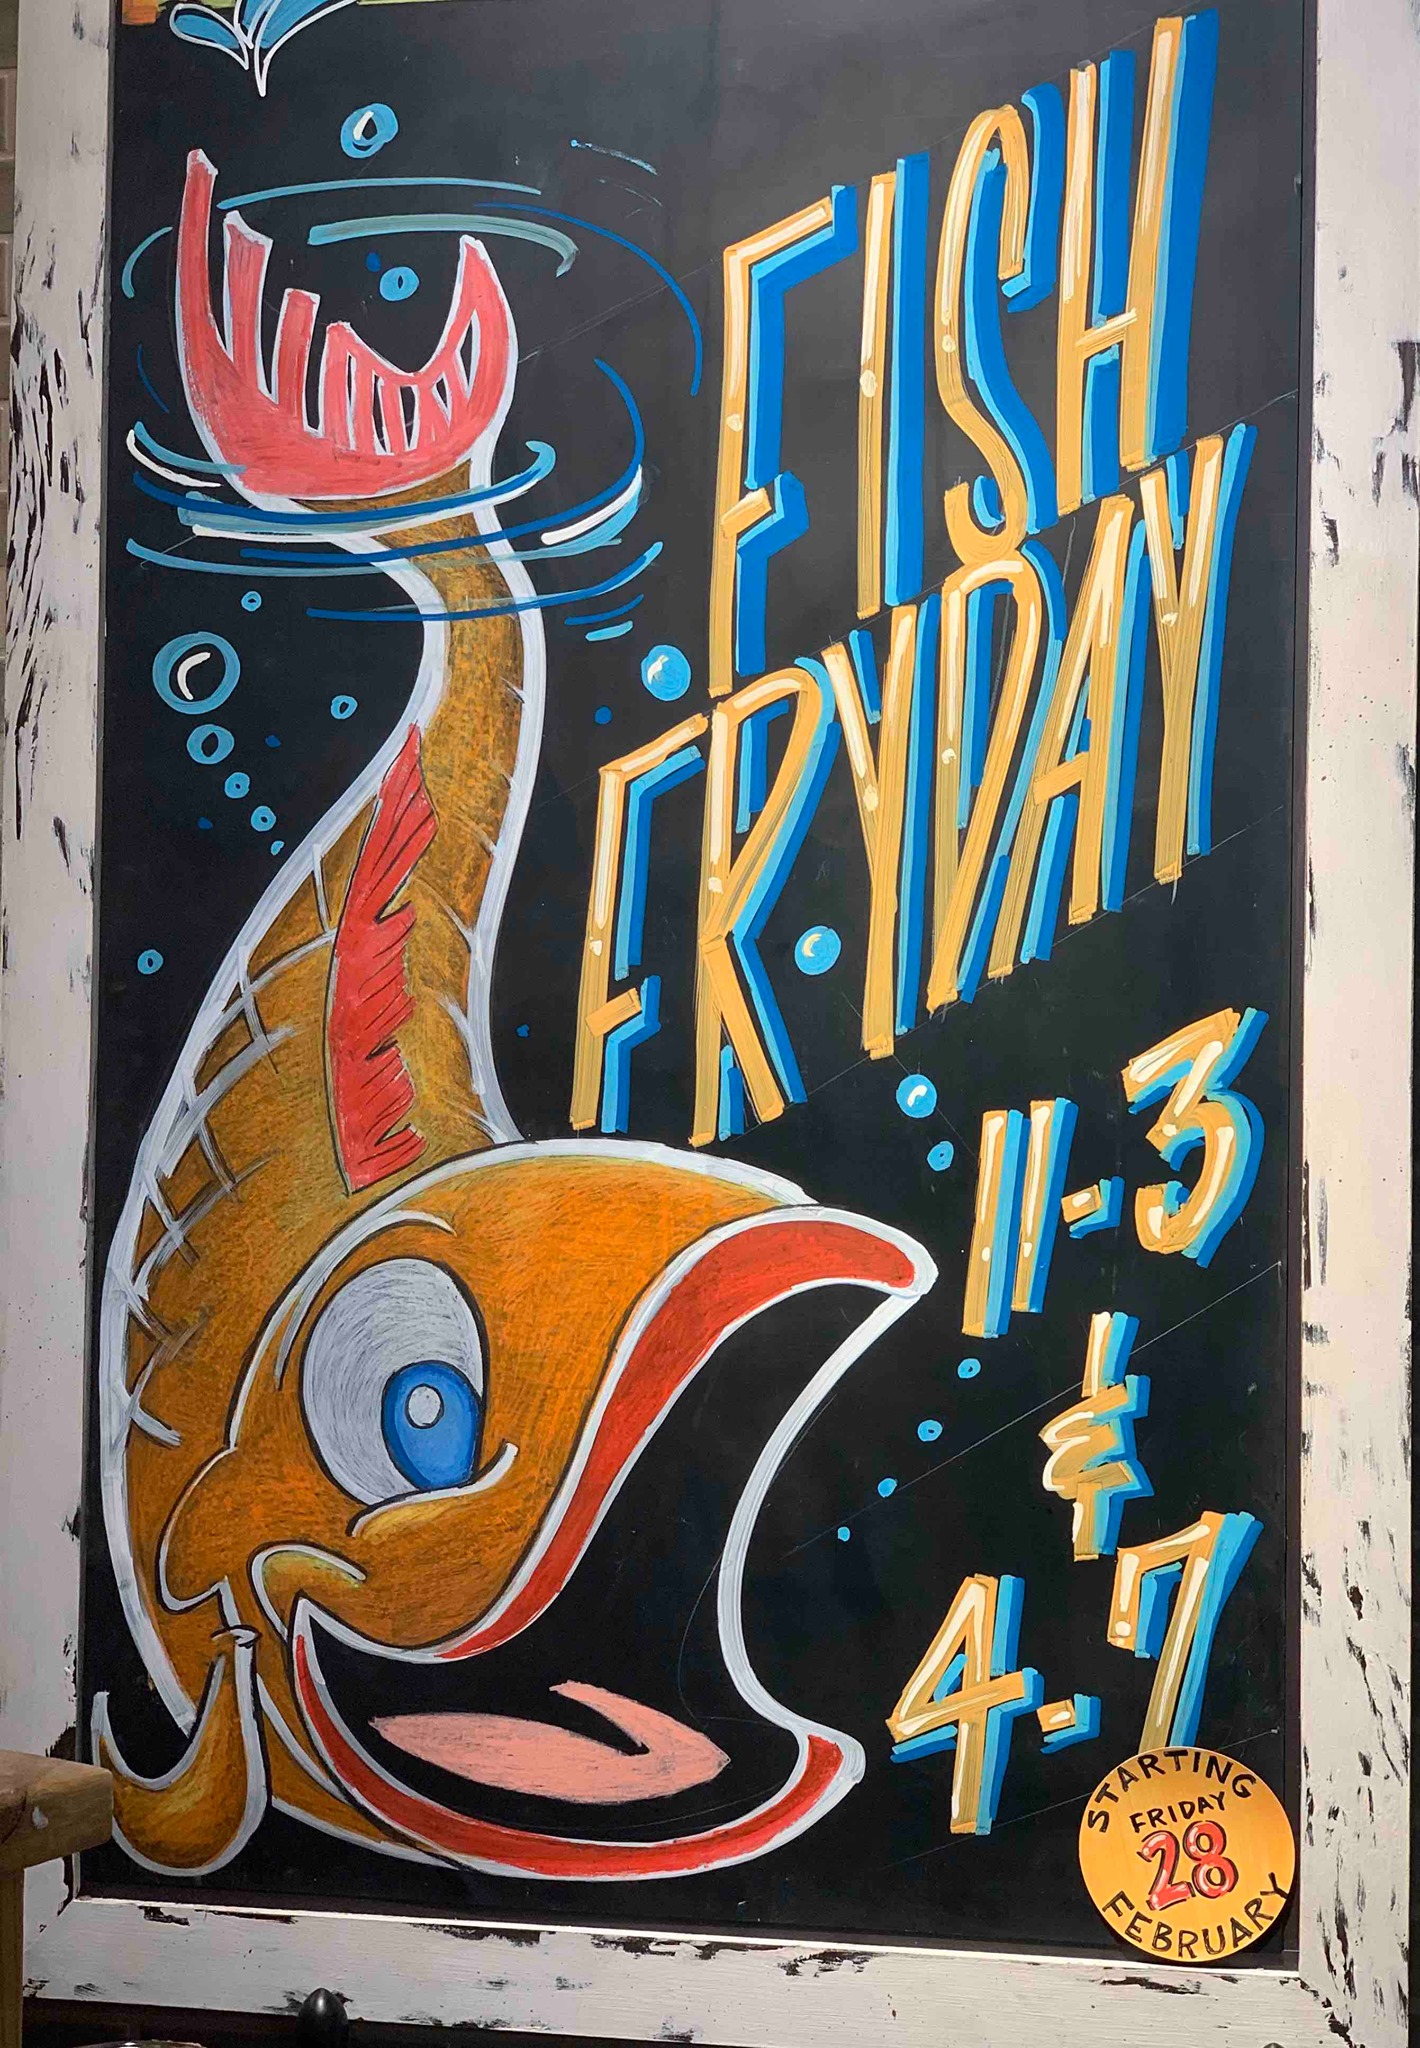 FISH
FRYDAY
11-3
&
4-7
STARTING
FRIDAY
28
FEBRUARY